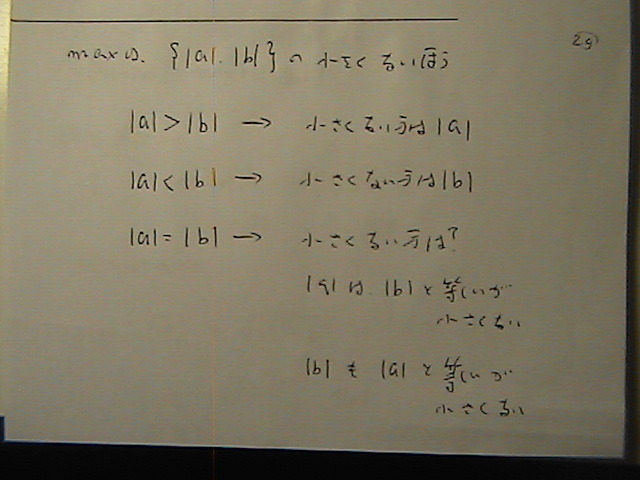 maxは、{|a|, |b|}の小さくないほう
29
|a|>|b| → 小さくない方は|a|
|a|<|b| → 小さくない方は|b|
|a|=|b| → 小さくない方は?
|a|は |b|と等しいが
小さくない
|b|も |a|と等しいが
小さくない